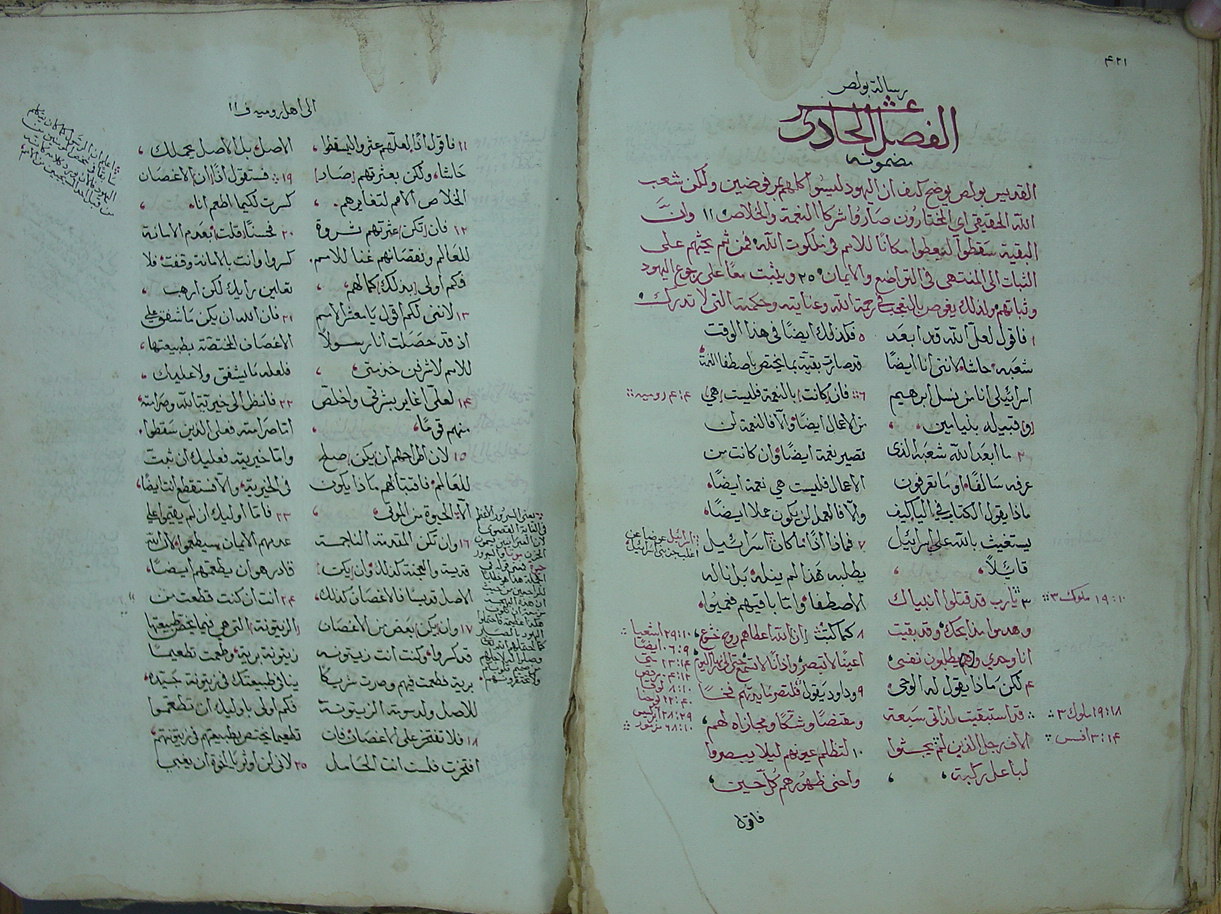 ٤٢١
رسالة بولص
الفصل الحادي عشر
مضمونه
القديس بولص يوضح كيف ان اليهود ليسوا كلهم مرفوضين ولكن شعب
الله الحقيقي اي المختارون صاروا شركا النعمة والخلاص ١١ وان
البقية سقطوا ليعطوا مكانا للامم في ملكوت الله فمن ثم يحثهم على
الثبات الى المنتهى في التواضع والايمان ٢٥ ويثبت معا على رجوع اليهود
وثباتهم ولذلك يغوص بالتعجب في رحمة الله وعنايته وحكمته التي لا تدرك
١ فاقول لعل الله قد ابعد
شعبه حاشاه لانني انا ايضا
اسرائيلي انا من نسل ابرهيم
من قبيله بنيامين
٢ ما ابعد الله شعبه الذي
عرفه سالفا او ما تعرفون
ماذا يقول الكتاب في ايليا كيف
يستغيث بالله على اسرائيل
قايلا
٣ يا رب قد قتلوا انبياك
وهدموا مذابحك وقد بقيت
انا وحدي وهم يطلبون نفسي
٤ لكن ماذا يقول له الوحي
قد استبقيت لذاتي سبعة
الاف رجل الذين لم يجثوا
لباعل ركبة
٥ فكذلك ايضا في هذا الوقت
قد صارت بقية بما يختص باصطفا النعمة
٦ فان كانت بالنعمة فليست هي
من الاعمال ايضا والا فالنعمة لن
تصير نعمة ايضا وان كانت من
الاعمال فليست هي نعمة ايضا
والا فالعمل لن يكون عملا ايضا
٧ فماذا اذا ما كان اسرائيل
يطلبه هذا لم ينله بل ناله
الاصطفا واما باقيهم فتعموا
٨ كما كتب ان الله اعطاهم روح خشوع
اعينا لا تبصر واذانا لا تسمع حتى الى يوم اليوم
٩ وداود يقول فلتصر مايدتهم فخا
ومقنصا وشكا ومجازاه لهم
١٠ لتظلم عيونهم ليلا يبصروا
واحنى ظهورهم كل حين
فاقول
١٠:١٩ ملوك ٣
١٨:١٩ ملوك ٣
الى اهل رومية ف ١١
١١ فاقول اذا لعلهم عثروا ليسقطوا
حاشاه ولكن بعثرتهم صار
الخلاص الامم لتغايرهم
١٢ فان تكن عثرتهم ثروة
للعالم ونقصانهم غنا للامم
فكم اولى بذلك كمالهم
١٣ لانني لكم اقول يا معشر الامم
اذ قد حصلت انا رسولا
للامم لاشرفن خدمتي
١٤ لعلي اغاير بشرتي واخلص
منهم قوما
١٥ لان اطراحهم ان يكن صلح
للعالم فاقتبالهم ماذا يكون
الا الحيوة من الموتى
١٦ وان تكن المقدمة الناجمة
قدسية والعجنة كذلك وان يكن
الاصل قديسا فالاغصان كذلك
١٧ وان يكن بعض من الاغصان
قد كسروا وكنت انت زيتونة
برية فطعمت فيهم وصرت شريكا
للاصل ولدسومة الزيتونة
١٨ فلا تفتخر على الاغصان فان
افتخرت فلست انت الحامل
الاصل بل الاصل يحملك
١٩ فستقول اذا ان الاغصان
كسرت لكيما اطعم انا
٢٠ فحسنا قلت بعدم الامانة
كسروا وانت بالامانة وقفت فلا
تعلين برايك لكن ارهب
٢١ فان الله ان يكن ما شفق على
الاغصان المختصة بطبيعتها
فلعله ما يشفق ولا عليك
٢٢ فانظر الى خيرية الله وصرامته
اما صرامته فعلى الذين سقطوا
واما خيريته فعليك ان ثبت
في الخيرية والا فستقطع انت ايضا
٢٣ فاما اوليك ان لم يقيموا على
عدمهم الايمان سيطعموا لان الله
قادر هو ان يطعمهم ايضا
٢٤ انت ان كنت قطعت من
الزيتونة التي هي فيما يختص طبيعتها
زيتونة برية وطعمت تطعيما
ينافي طبيعتك في زيتونة جيده
فكم اولى باوليك ان تطعموا
تطعيما يختص بطبيعتهم في زيتونتهم
٢٥ لاني لن اوثر يا اخوة ان يغبي